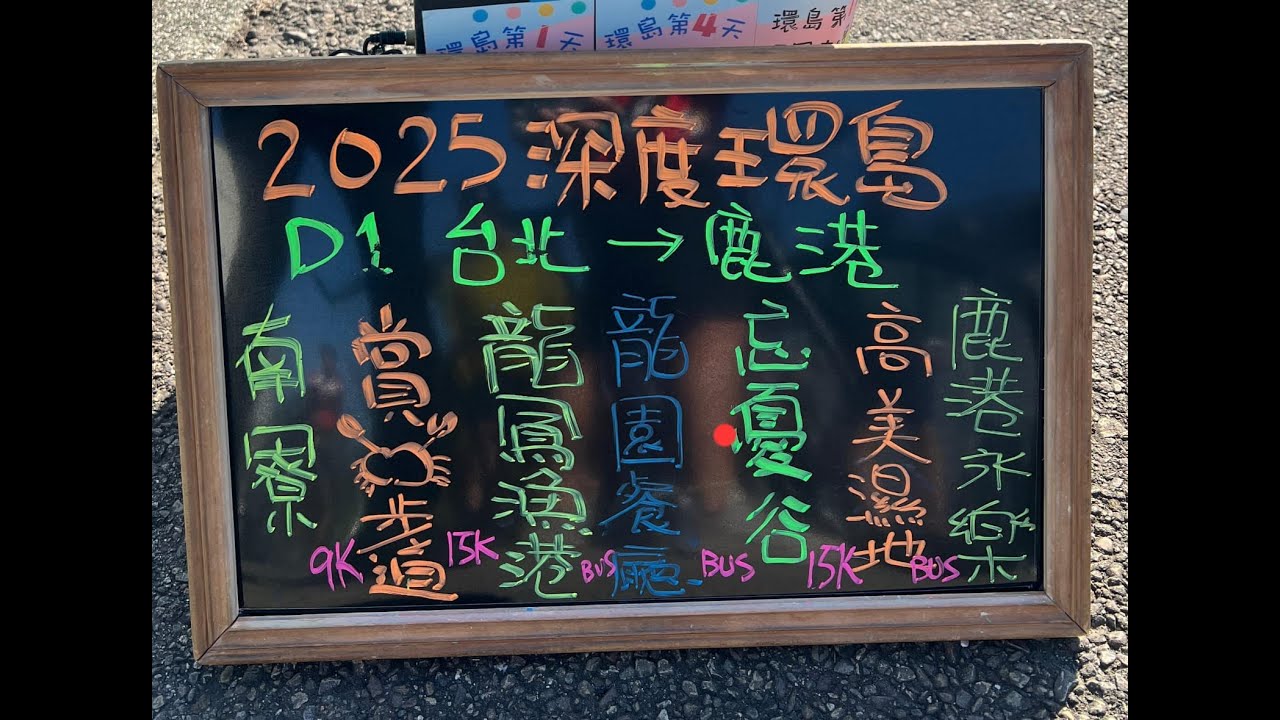 環島第1天
環島第4天
環島第
2025深度環島
D1 台北→鹿港
南寮
9K
賞步道
15K
龍鳳漁港
BUS
龍園餐廳
BUS
忘憂谷
15K
高美濕地
BUS
鹿港永樂